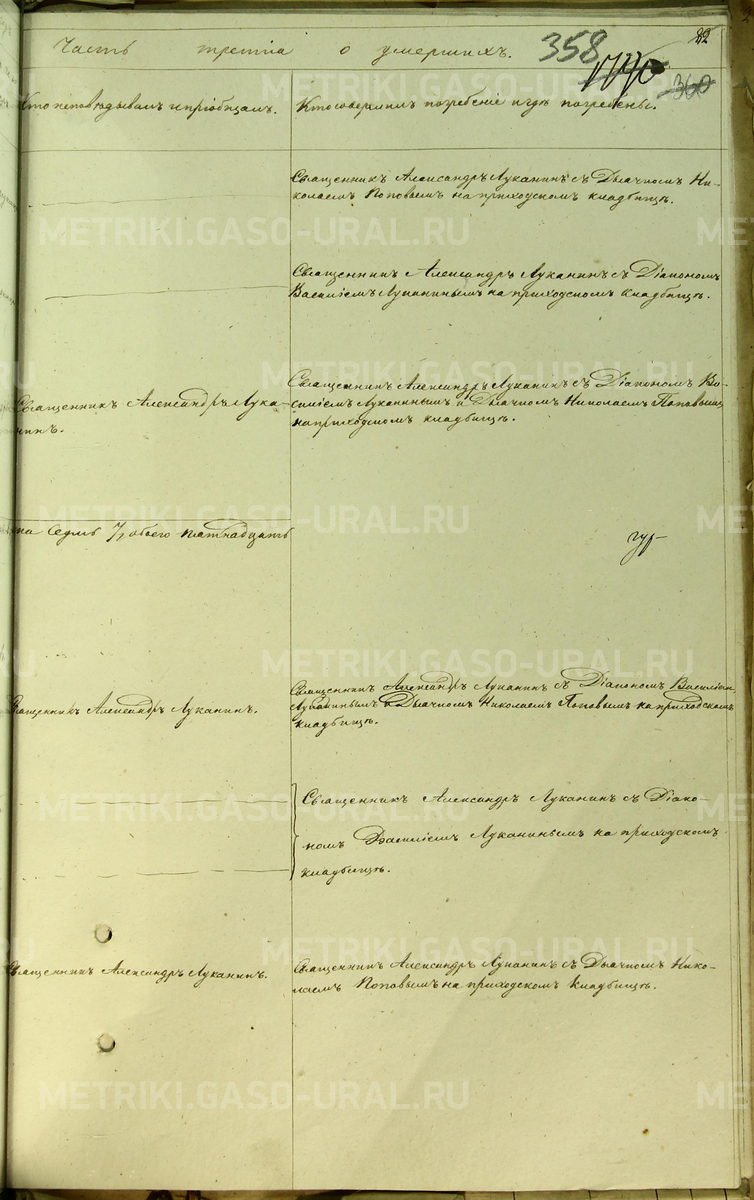 22
Часть третія о умершихъ.
358
360
Кто исповѣдывалъ и пріобщалъ.
Кто совершилъ погребеніе и гдѣ погребены.
Священникъ Александръ Луканинъ съ Дьячкомъ Ни-
колаемъ Поповымъ на приходскомъ кладбищѣ.
Священникъ Александръ Луканинъ съ Діакономъ
Василіемъ Луканинымъ на приходскомъ кладбищѣ.
Священникъ Александръ Лука-
нинъ.
Священникъ Александръ Луканинъ съ Діакономъ Ва-
силіемъ Луканинымъ и Дьячкомъ Николаемъ Поповымъ
на приходскомъ кладбищѣ.
на седмь 7, обоего пятнадцать
Священникъ Александръ Луканинъ.
Священникъ Александръ Луканинъ съ Діакономъ Василіем
Луканинымъ и Дьячкомъ Николаемъ Поповымъ на приходскомъ
кладбищѣ.
Священникъ Александръ Луканинъ съ Діако-
номъ Василіемъ Луканинымъ на приходскомъ
кладбищѣ.
Священникъ Александръ Луканинъ.
Священникъ Александръ Луканинъ съ Дьячкомъ Нико-
лаемъ Поповымъ на приходскомъ кладбищѣ.
METRIKI.GASO-URAL.RU